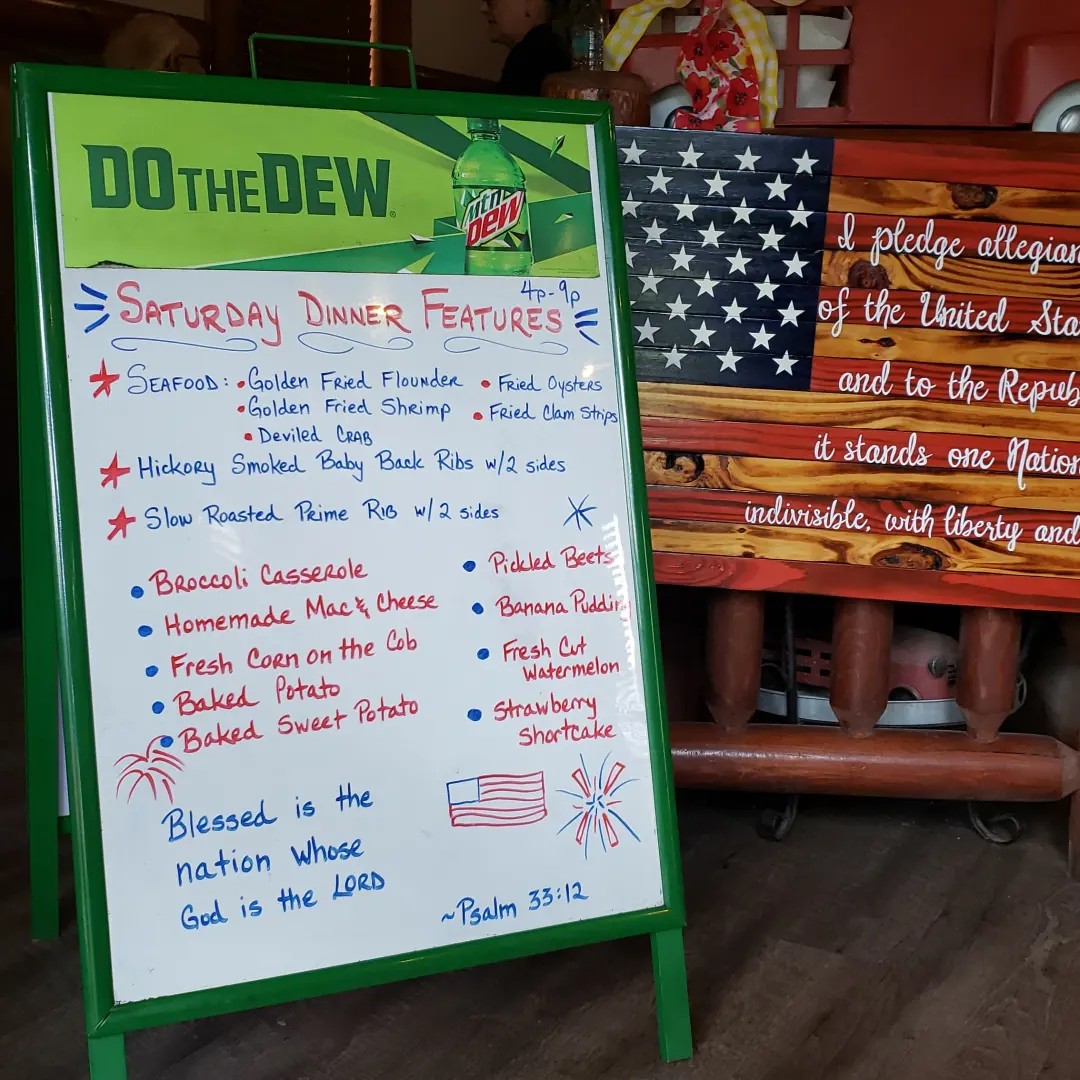 DO THE DEW
mtn
DEW
4p-9p
SATURDAY DINNER FEATURES
SEAFOOD: • Golden Fried Flounder • Fried Oysters
• Golden Fried Shrimp • Fried Clam Strips
• Deviled CRAB
Hickory Smoked Baby Back Ribs w/2 sides
Slow Roasted Prime RIB w/2 sides
• Broccoli Casserole
• Homemade Mac & Cheese
• Fresh Corn on the Cob
• Baked Potato
• Baked Sweet Potato
• Pickled Beets
• Banana Pudding
• Fresh Cut
Watermelon
• Strawberry
Shortcake
Blessed is the
nation whose
God is the LORD
~Psalm 33:12
I pledge allegian
of the United Sta
and to the Repub
it stands one Nation
indivisible, with liberty and